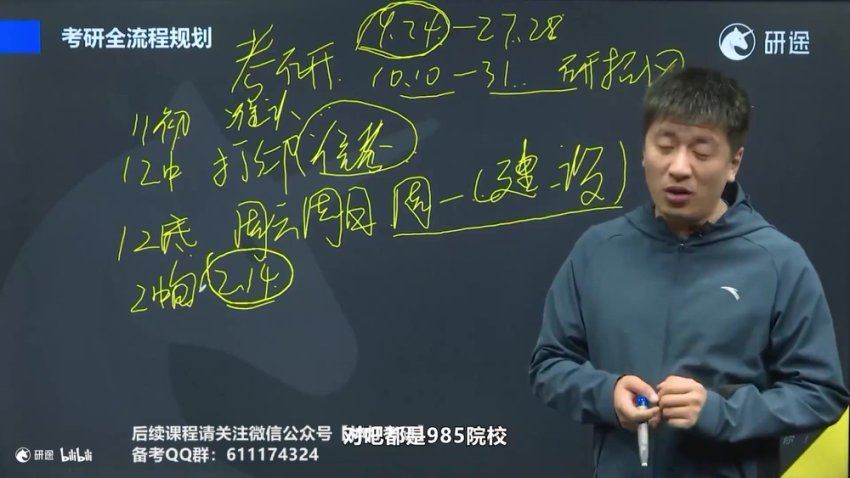 考研全流程规划
研途
9.24-27.28
考研 10.10-31. 研招网
11初 准认
12中 打印准考
12底 周六周日 周一(建、设)
2中旬 2.14
后续课程请关注微信公众号
备考QQ群：611174324
对吧都是985院校
研途 bilibili